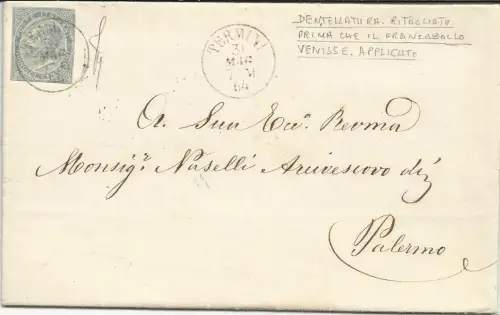 DENTELLATURA. RITAGLIATA
PRIMA CHE IL FRANCOBOLLO
VENISSE. APPLICATO
TERMINI
31
MAG
7 M
64
A. Sua Ecc.ª Revma
Monsig.r Naselli Arcivescovo di
Palermo